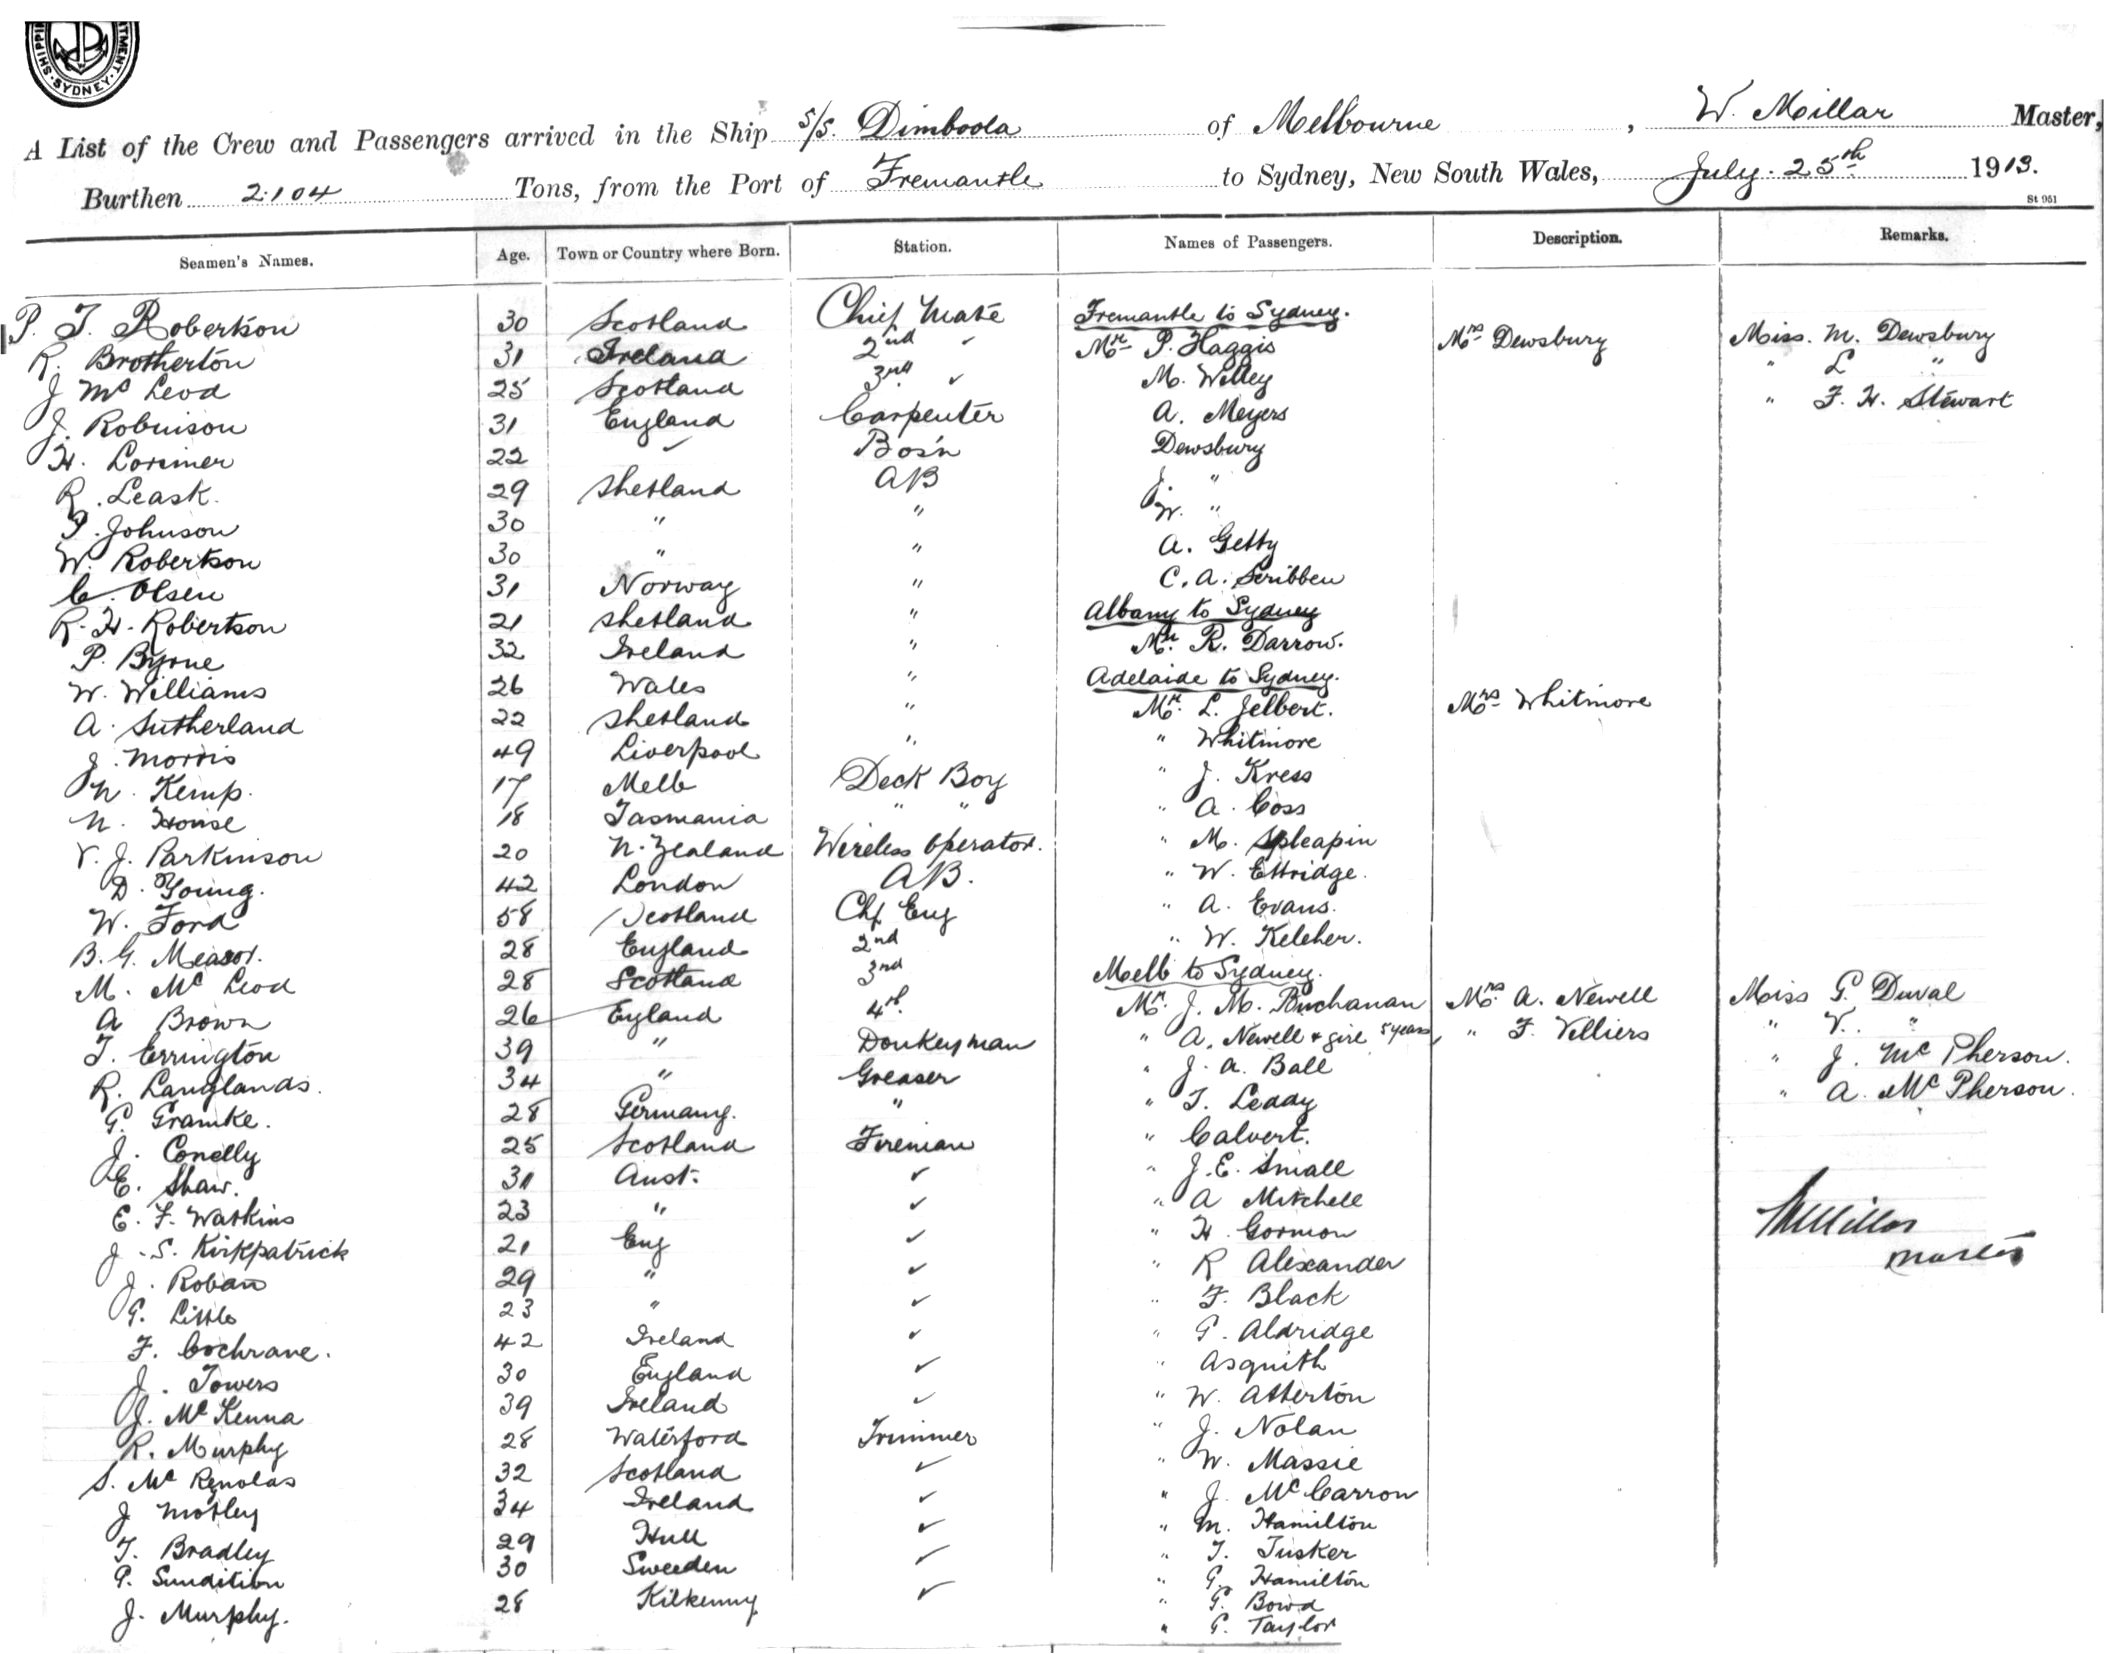 SHIPPI TMENT · SYDNEY ·
A List of the Crew and Passengers arrived in the Ship S/S. Dimboola of Melbourne, W. Millar Master,
Burthen 2104 Tons, from the Port of Fremantle to Sydney, New South Wales, July 25th 1913.
St 951
Seamen's Names. Age. Town or Country where Born. Station. Names of Passengers. Description. Remarks.
P. T. Robertson 30 Scotland Chief Mate Fremantle to Sydney.
R. Brotherton 31 Ireland 2nd ✓ Mr P. Haggis Mrs Dewsbury Miss. M. Dewsbury
J Mc Leod 25 Scotland 3rd ✓ M. Willey " L "
J. Robinson 31 England Carpenter A. Meyers " F. H. Stewart
H. Lorimer 22 ✓ Bos'n Dewsbury
R. Leask. 29 Shetland AB J. "
P. Johnson 30 " " W. "
W. Robertson 30 " " A. Getty
C. Olsen 31 Norway " C. A. Scribben
R. H. Robertson 21 Shetland " Albany to Sydney
P. Byrne 32 Ireland " Mr R. Darrow.
W. Williams 26 Wales " Adelaide to Sydney.
A. Sutherland 22 Shetland " Mr. L. Jelbert. Mrs Whitmore
J. Morris 49 Liverpool " " Whitmore
N. Kemp. 17 Melb Deck Boy " J. Kress
N. House 18 Tasmania " " " A. Coss
V. J. Parkinson 20 N. Zealand Wireless Operator. " M.
D. Young. 42 London AB. " W. Ettridge.
W. Ford 58 Scotland Chf Eng " A. Evans.
B. G. Measor. 28 England 2nd " W. Keleher.
M. Mc Leod 28 Scotland 3rd Melb to Sydney.
A Brown 26 England 4th. Mr. J. M. Buchanan Mrs. A. Newell Miss G. Duval
T. Errington 39 " Donkeyman " A. Newell + girl 5 years, " F. Villiers " V. "
R. Langlands. 34 " Greaser " J. A. Ball " J. Mc Pherson.
G. Gramke. 28 Germany. " " T. Leddy " A. Mc Pherson.
J. Conelly 25 Scotland Fireman " Calvert.
E. Shaw. 31 Aust. ✓ " J. E. Small
E. F. Watkins 23 " ✓ " A Mitchell
J. S. Kirkpatrick 21 Eng ✓ " H. Gormon
J. Roban 29 " ✓ " R Alexander
G. Little 23 " ✓ " F. Black
F. Cochrane. 42 Ireland ✓ " G. Aldridge
J. Towers 30 England ✓ " Asquith
J. Mc Kenna 39 Ireland ✓ " W. Atterton
R. Murphy 28 Waterford Trimmer " J. Nolan
S. Mc Renolds 32 Scotland ✓ " W. Massie
J Motley 34 Ireland ✓ " J. Mc Carron
T. Bradley 29 Hull ✓ " M. Hamilton
P. 30 Sweeden ✓ " T. Tusker
J. Murphy. 28 Kilkenny ✓ " G. Hamilton
" G. Bowd
" G. Taylor
WMillar
Master